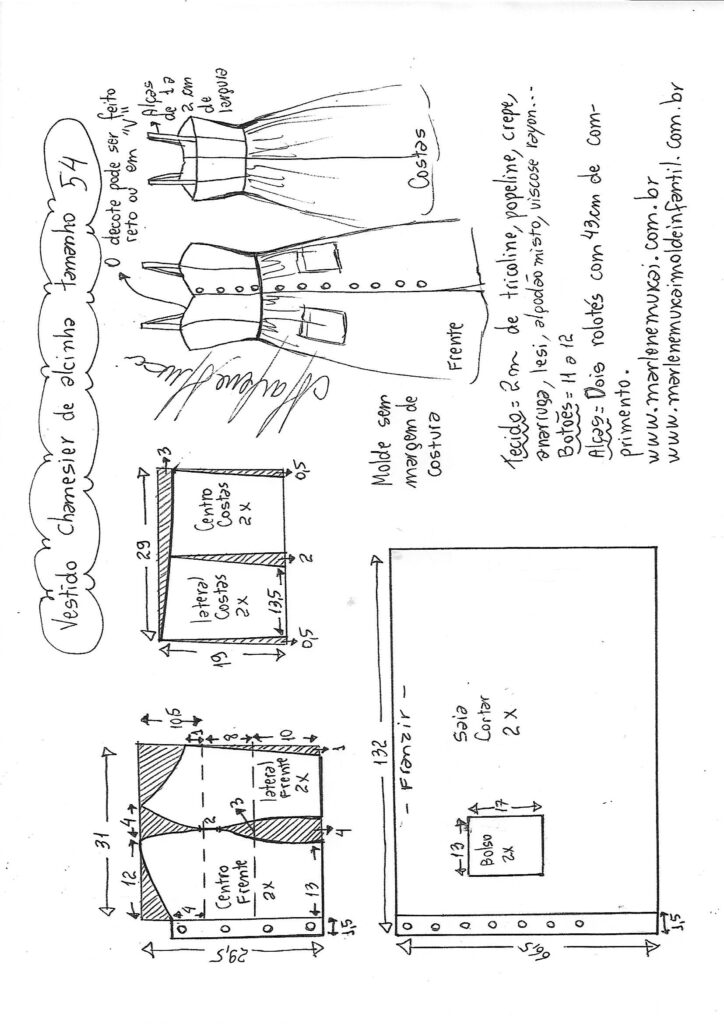 Vestido Chamesier de alcinha tamanho 54
O decote pode ser feito
reto ou em "V"
Alças
de 1 a
2 cm
de
largura
Costas
Frente
Molde sem
margem de
costura
Tecido = 2m de tricoline, popeline, crepe,
anarruga, lesi, algodão misto, viscose rayon...
Botões = 11 a 12
Alças = Dois rolotés com 43cm de com-
primento.
www.marlenemukai.com.br
www.marlenemukaimoldeinfantil.com.br
29
3
19
Lateral
Costas
2x
Centro
Costas
2x
13,5
0,5
2
0,5
31
12
4
10,5
4
2
3
1
8
10
Centro
Frente
2x
Lateral
Frente
2x
13
4
1
29,5
1,5
132
- Franzir -
Saia
Cortar
2x
13
17
Bolso
2x
1,5